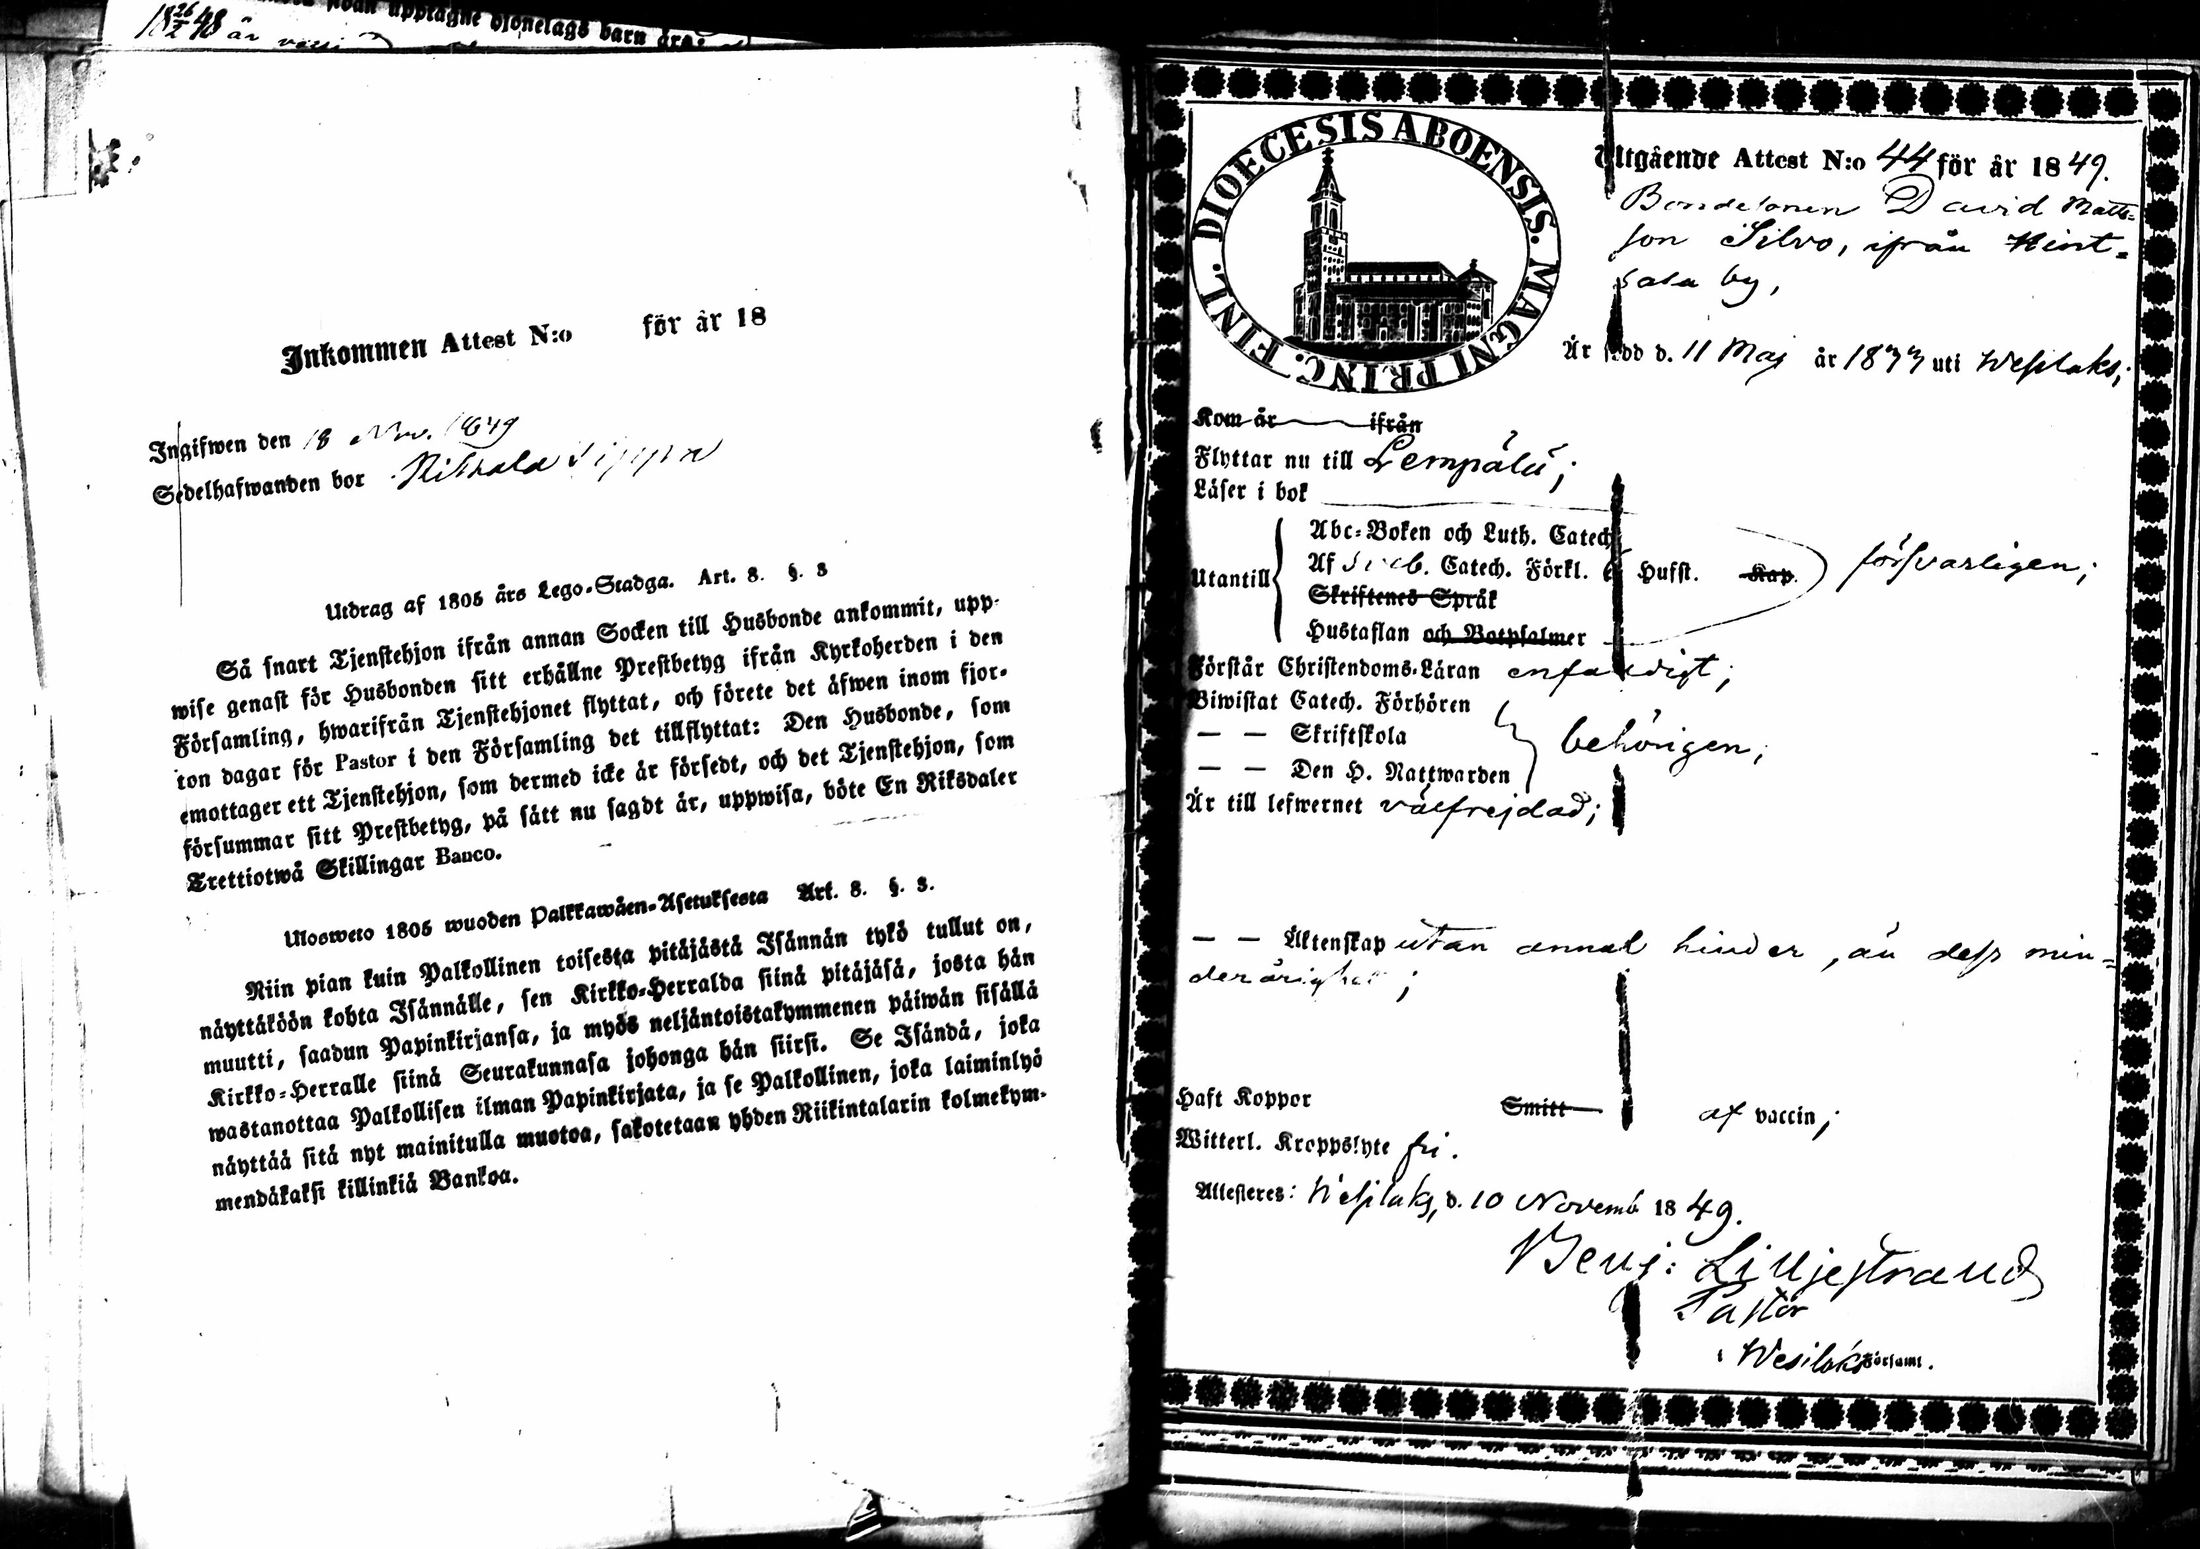 18 26/2 48 är
sedan upptagne Hjonelags barn äro:
Inkommen Attest N:o för år 18
Ingifwen den 18 Nov. 1849
Sedelhafwanden bor
Utdrag af 1805 års Lego-Stadga. Art. 8. §. 3
Så snart Tjenstehjon ifrån annan Socken till Husbonde ankommit, upp-
wise genast för Husbonden sitt erhållne Prestbetyg ifrån Kyrkoherden i den
Församling, hwarifrån Tjenstehjonet flyttat, och förete det äfwen inom fjor-
ton dagar för Pastor i den Församling det tillflyttat: Den Husbonde, som
emottager ett Tjenstehjon, som dermed icke är försedt, och det Tjenstehjon, som
försummar sitt Prestbetyg, på sätt nu sagdt är, uppwisa, böte En Riksdaler
Trettiotwå Skillingar Banco.
Ulosweto 1805 wuoden Palkkawäen-Asetuksesta Art. 8. §. 3.
Niin pian kuin Palkollinen toisesta pitäjästä Isännän tykö tullut on,
näyttäköön kohta Isännälle, sen Kirkko-Herralda siinä pitäjäsä, josta hän
muutti, saadun Papinkirjansa, ja myös neljäntoistakymmenen päiwän sisällä
Kirkko-Herralle siinä Seurakunnasa johonga hän siirsi. Se Isändä, joka
wastanottaa Palkollisen ilman Papinkirjata, ja se Palkollinen, joka laiminlyö
näyttää sitä nyt mainitulla muotoa, sakotetaan yhden Riikintalarin kolmekym-
mendäkaksi killinkiä Bankoa.
DIOECESIS ABOENSIS. MAGNI PRINC. FINL.
Utgående Attest N:o 44 för år 1849.
Bondesonen David Matts-
son Silvo, ifrån Hint-
sala by,
Är född d. 11 Maj år 1833 uti Wesilaks;
Kom år ifrån
Flyttar nu till Lempälä;
Läser i bok
Abc-Boken och Luth. Catech
Af Sveb. Catech. Förkl. Hufst. Kap. försvarligen;
Utantill
Skriftenes Språk
Hustaflan och Botpsalmer
Förstår Christendoms-Läran enfaldigt;
Biwistat Catech. Förhören
— — Skriftskola behörigen;
— — Den H. Nattwarden
Är till lefwernet välfrejdad;
— — Äktenskap utan annat hinder, än dess min-
derårighet;
Haft Koppor Smitt af vaccin;
Witterl. Kroppslyte fri.
Attesteres: Wesilaks, d. 10 Novemb 1849.
Benj: Lilljestrand
Pastor
i Wesilaks Församl.